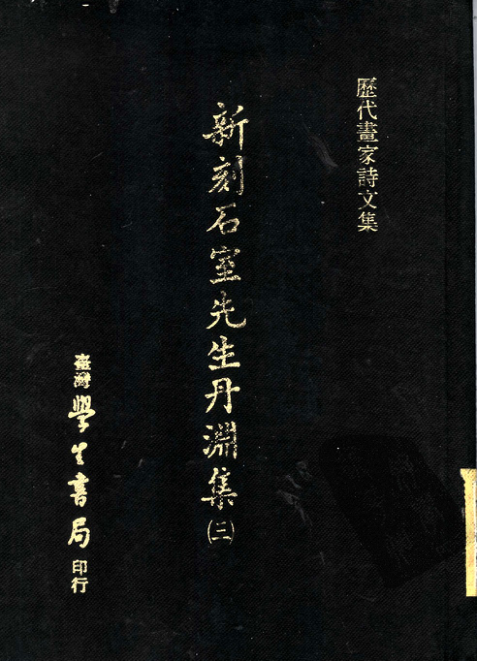 歷代畫家詩文集
新刻石室先生丹淵集㈡
臺灣學生書局印行